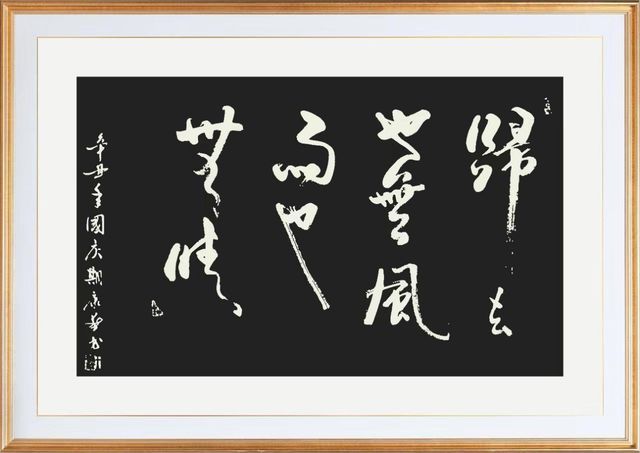 歸去
也無風
雨也
無晴
辛丑年國庆期书